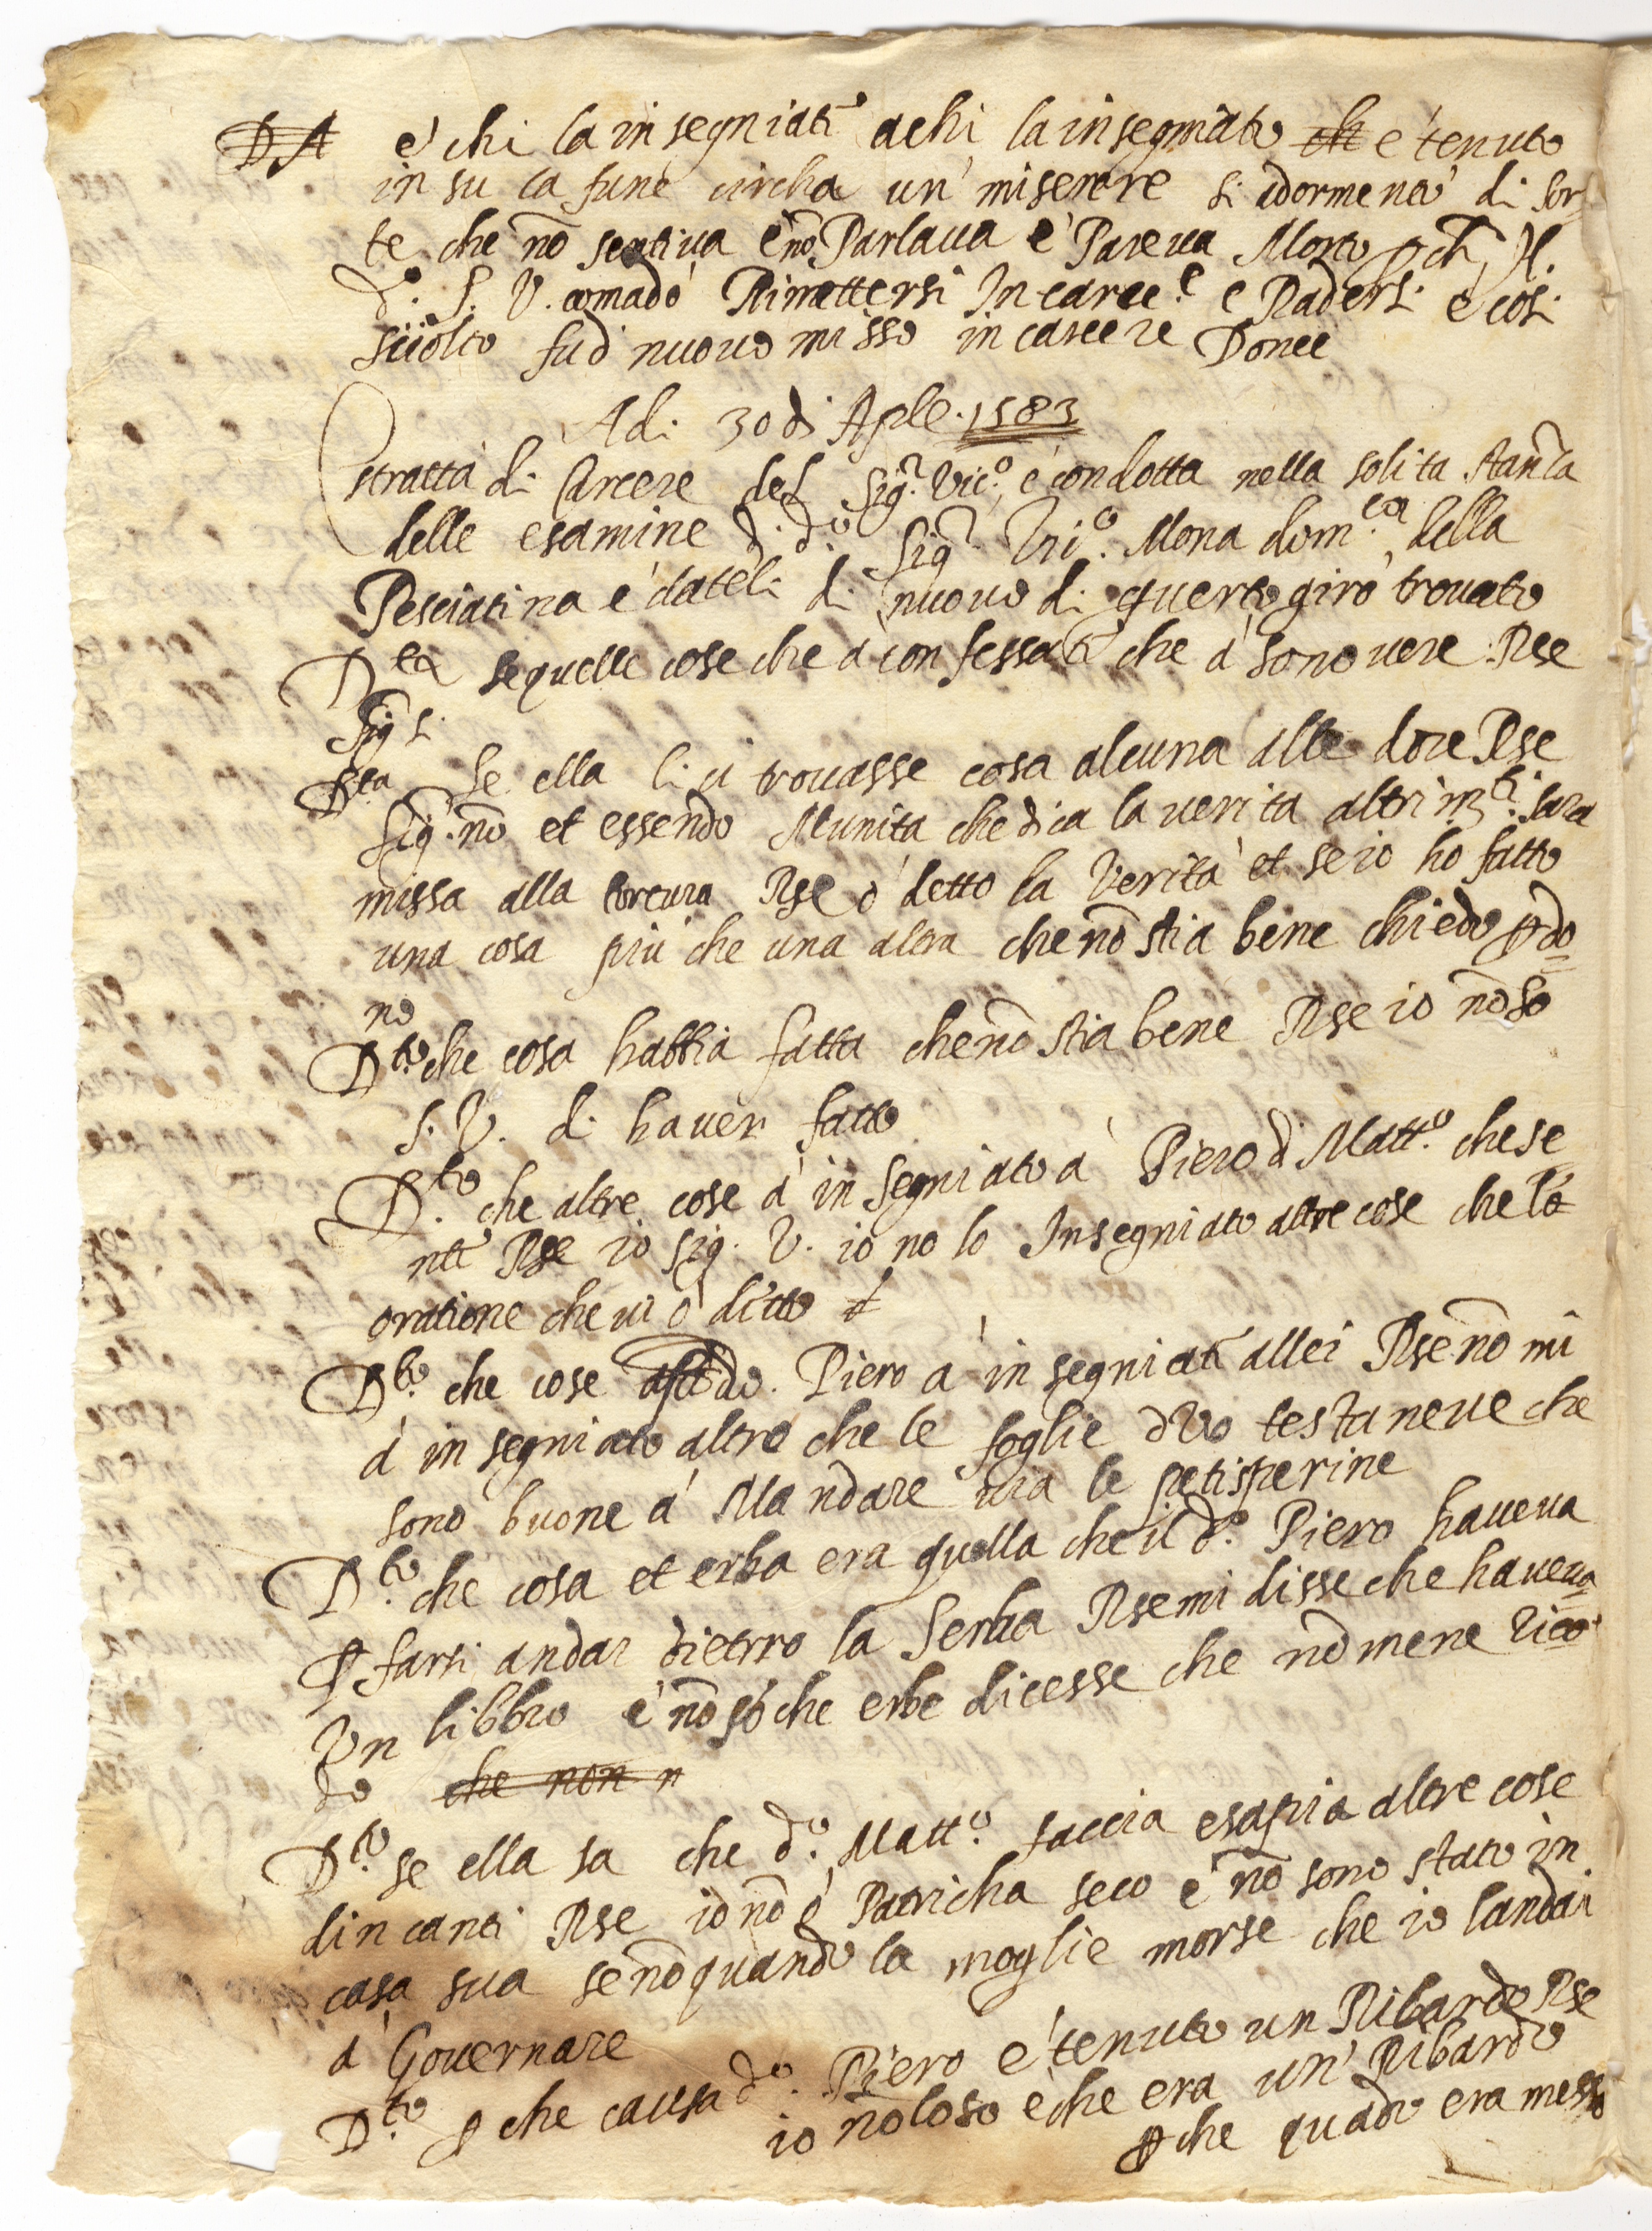 DA e' chi la insegniatõ achi la insegniato ch e' tenuto
in su la fune circha un' miserere si adormenò di sor-
te che nõ sentiva e' nõ Parlava e' Pareva Morto p ch Il
d.o S. V. comadò Rimettersi In carce.e e Radersi e cosi
sciolto fu d nuovo misso in carcere Donec
Adi 30 di Aple. 1583
stratta di Carcere del Sig.r Vic.o e' condotta nella solita stanza
delle esamine d. d.o Sig.r Vic.o Mona dom.ca della
Pesciatina e' dateli di nuovo di querto giro trovato
D.ta se quelle cose che à confessato che à sono vere Rse
Sig si
D.ta Se ella li ci trovasse cosa alcuna alle dore Rse
Sig. nõ et essendo Munita che dica la verita altrim.ti sara
missa alla torcura Rse ò detto la Verità et se io ho fatto
una cosa piu che una altra che nõ stia bene chiedo pdo=
no
D.to che cosa habbia fatta che nõ stia bene Rse io nõ so
S. V. di haver fatto
D.to che altre cose à insegniato à Piero d Matt.o che se
nte Rse io Sig. V. io no lo Insegniato altre cose che la
oratione che vi ò ditto
D.to che cose d.o Piero à insegniato allei Rse nõ mi
à insegniato altro che le foglie dVo testa neve che
sono buone à Mandare via le petisperine
D.to che cosa et erba era quella che il d.o Piero haveva
p farsi andar dietrro la Serva Rse mi disse che haveva
Un libbro e' nõ sò che erbe dicesse che nõ mene rico
do che non n
D.to se ella sa che d.o Matt.o faccia e sapia altre cose
dincanti Rse io nõ ò Patricha seco e' nõ sono stato in
casa sua se nõ quando la moglie morse che io landai
à Governare
D.to p che causa d.o Piero e' tenuto un Ribardo Rse
io nõ lo so e' che era un' Ribardo
p che quado era messo